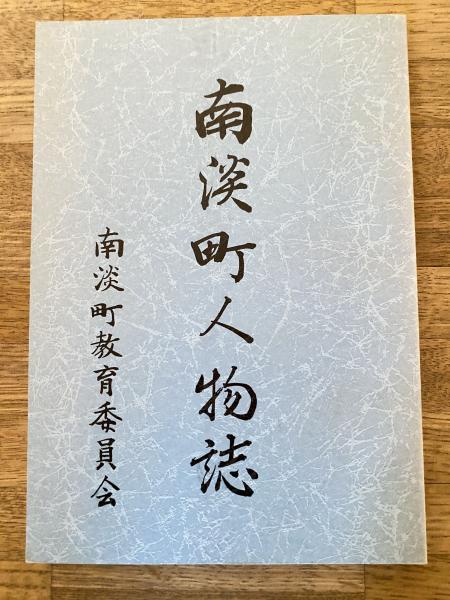 南淡町人物誌
南淡町教育委員会